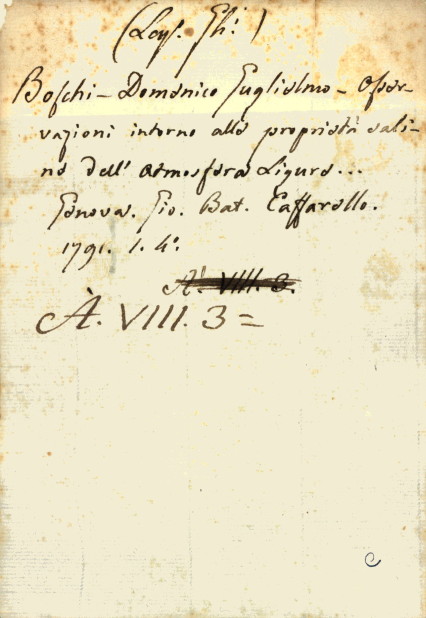 (Leys. Th.)
Boschi – Domenico Guglielmo – Osser-
vazioni intorno alle proprietà sali-
ne dell' Atmosfera Ligure...
Genova. Gio. Bat. Caffarello.
1791. 1. 4.°
A. VIII. 3.
À. VIII. 3 =